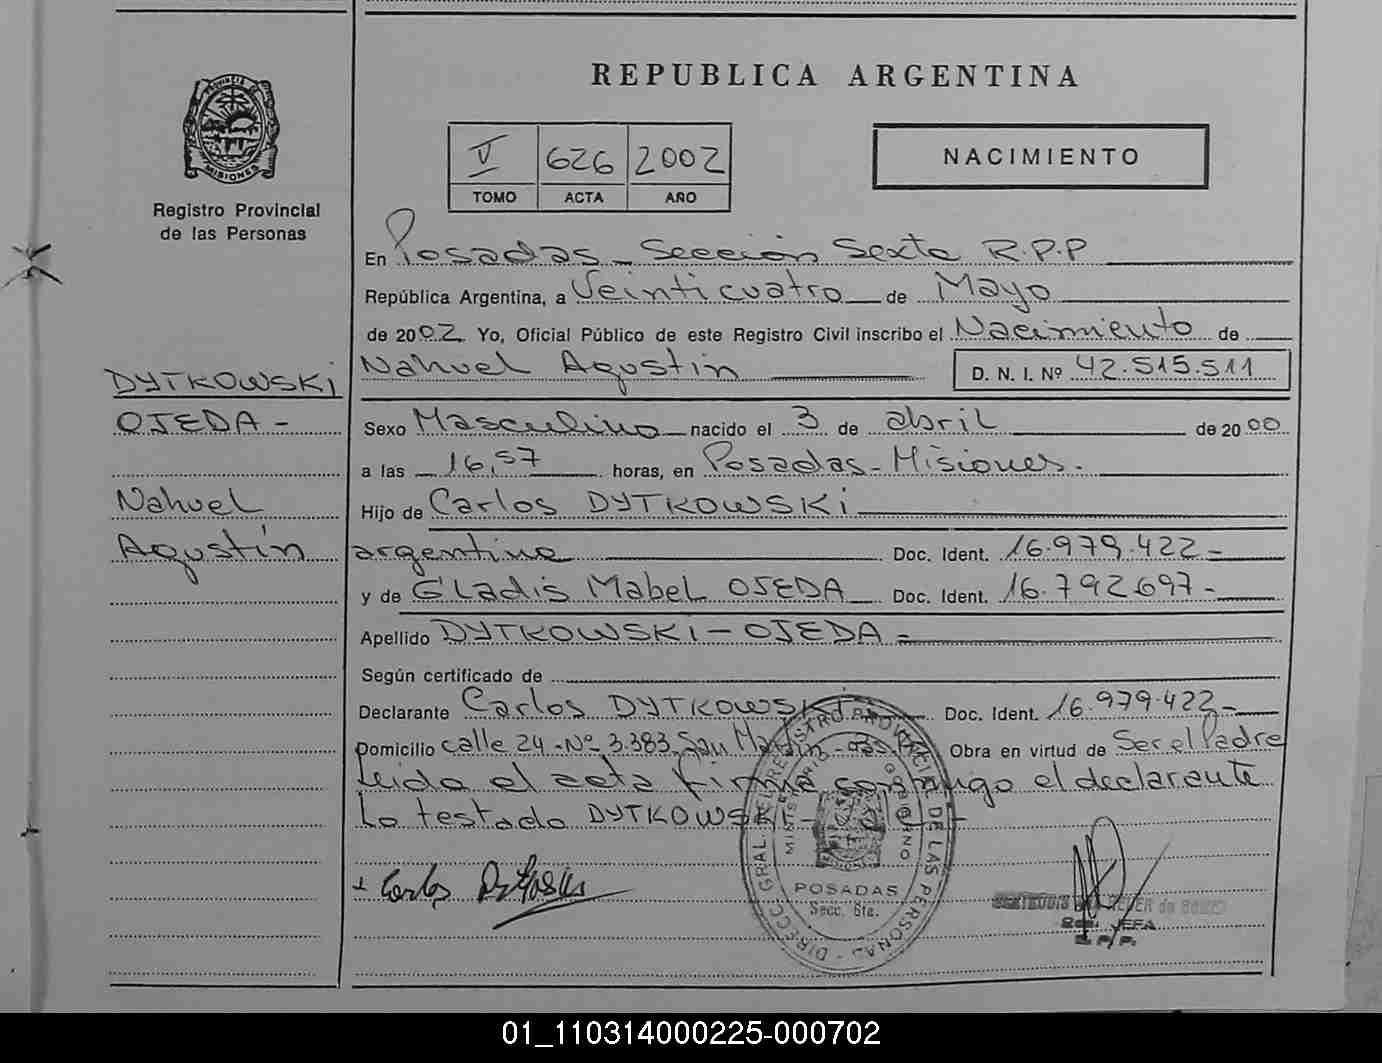 REPUBLICA ARGENTINA
V 626 2002
TOMO ACTA AÑO
NACIMIENTO
MISIONES
Registro Provincial
de las Personas
DYTKOWSKI
OJEDA -
Nahuel
Agustín
En Posadas - Sección Sexta R.P.P
República Argentina, a Veinticuatro de Mayo
de 2002 Yo, Oficial Público de este Registro Civil inscribo el Nacimiento de
Nahuel Agustín D. N. I. Nº 42.515.511
Sexo Masculino nacido el 3 de abril de 2000
a las 16,57 horas, en Posadas - Misiones.
Hijo de Carlos DYTKOWSKI
argentino Doc. Ident. 16.979.422 -
y de Gladis Mabel OJEDA Doc. Ident. 16.792.697 -
Apellido DYTKOWSKI - OJEDA =
Según certificado de
Declarante Carlos DYTKOWSKI Doc. Ident. 16.979.422 -
Domicilio calle 24 - Nº 3.383 San Martín - Obra en virtud de Ser el Padre
Leida el acta firma conmigo el declarante
Lo testado DYTKOWSKI -
Carlos
DIRECC. GRAL. DEL REGISTRO PROVINCIAL DE LAS PERSONAS
MINISTERIO GOBIERNO
POSADAS
Secc. 6ta.
JEFA
R.P.P.
01_110314000225-000702